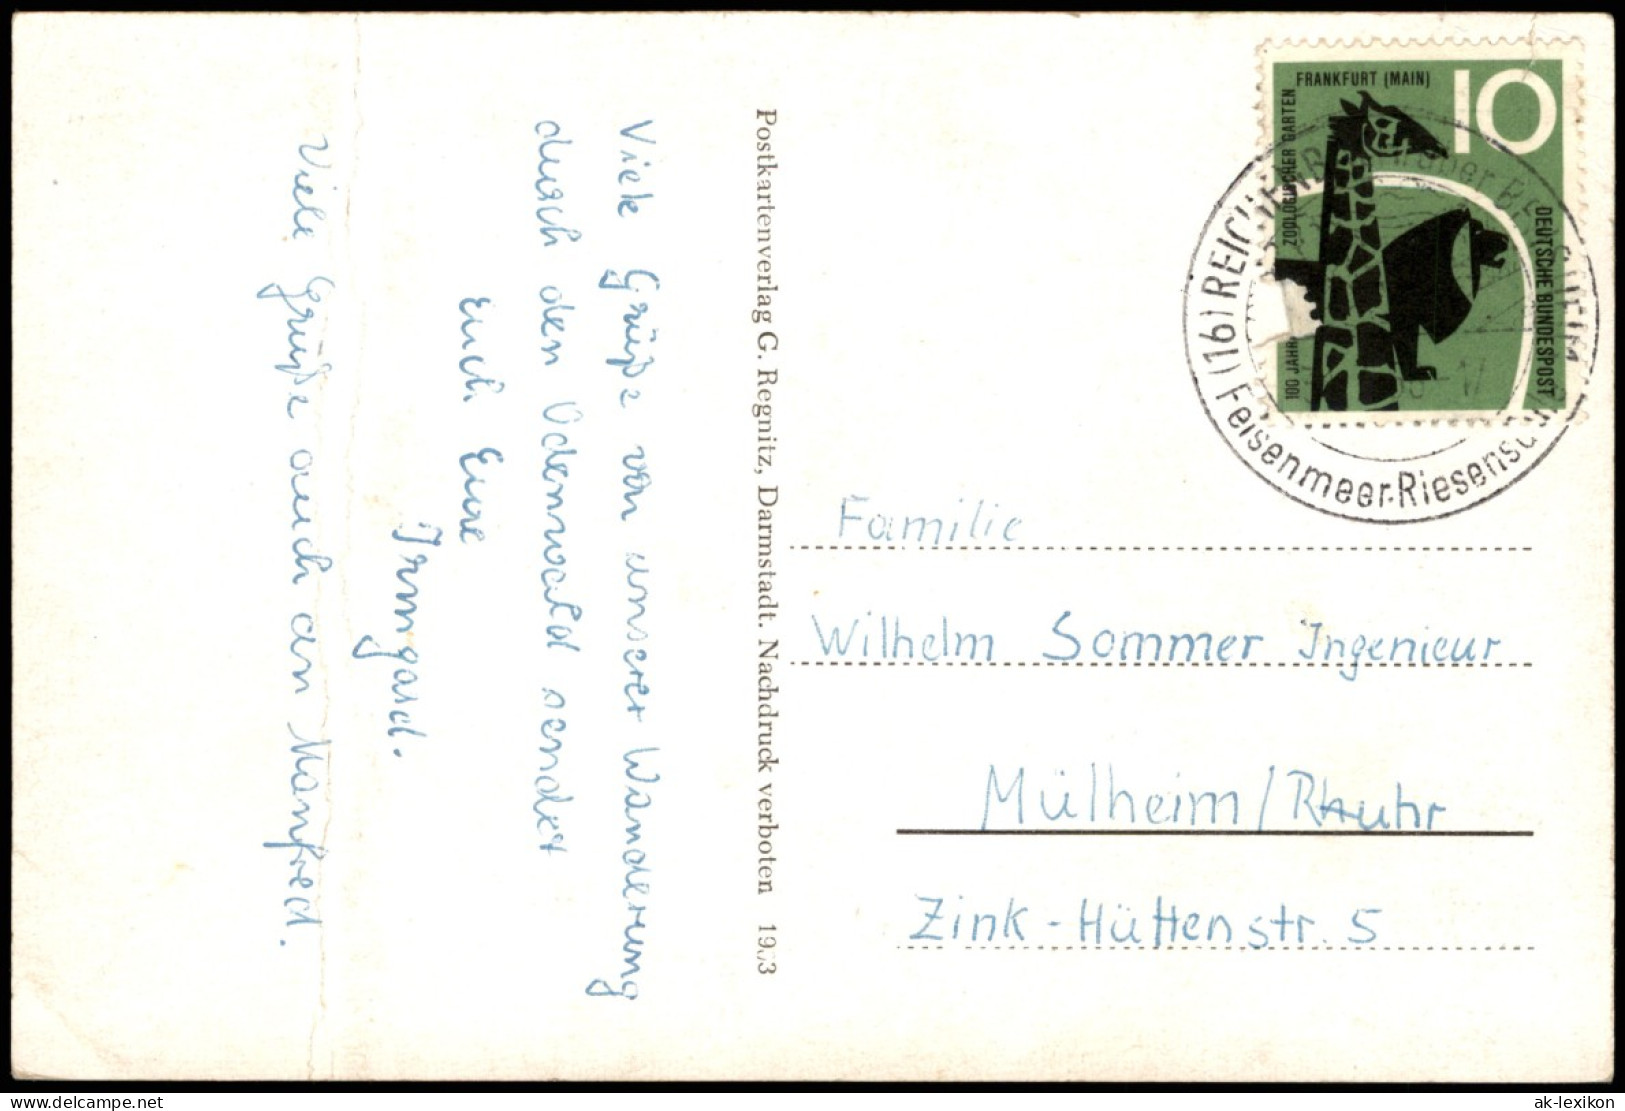 Viele Grüße von unserer Wanderung
durch den Odenwald sendet
Euch Eure
Irmgard.
Viele Grüße auch an Manfred.
Postkartenverlag G. Regnitz, Darmstadt. Nachdruck verboten 1963
FRANKFURT (MAIN)
10
100 JAHRE ZOOLOGISCHER GARTEN
DEUTSCHE BUNDESPOST
(16) REICHENB
Felsenmeer-Riesensäule
Familie
Wilhelm Sommer Ingenieur
Mülheim/Rhuhr
Zink-Hüttenstr. 5
ak-lexikon
www.delcampe.net